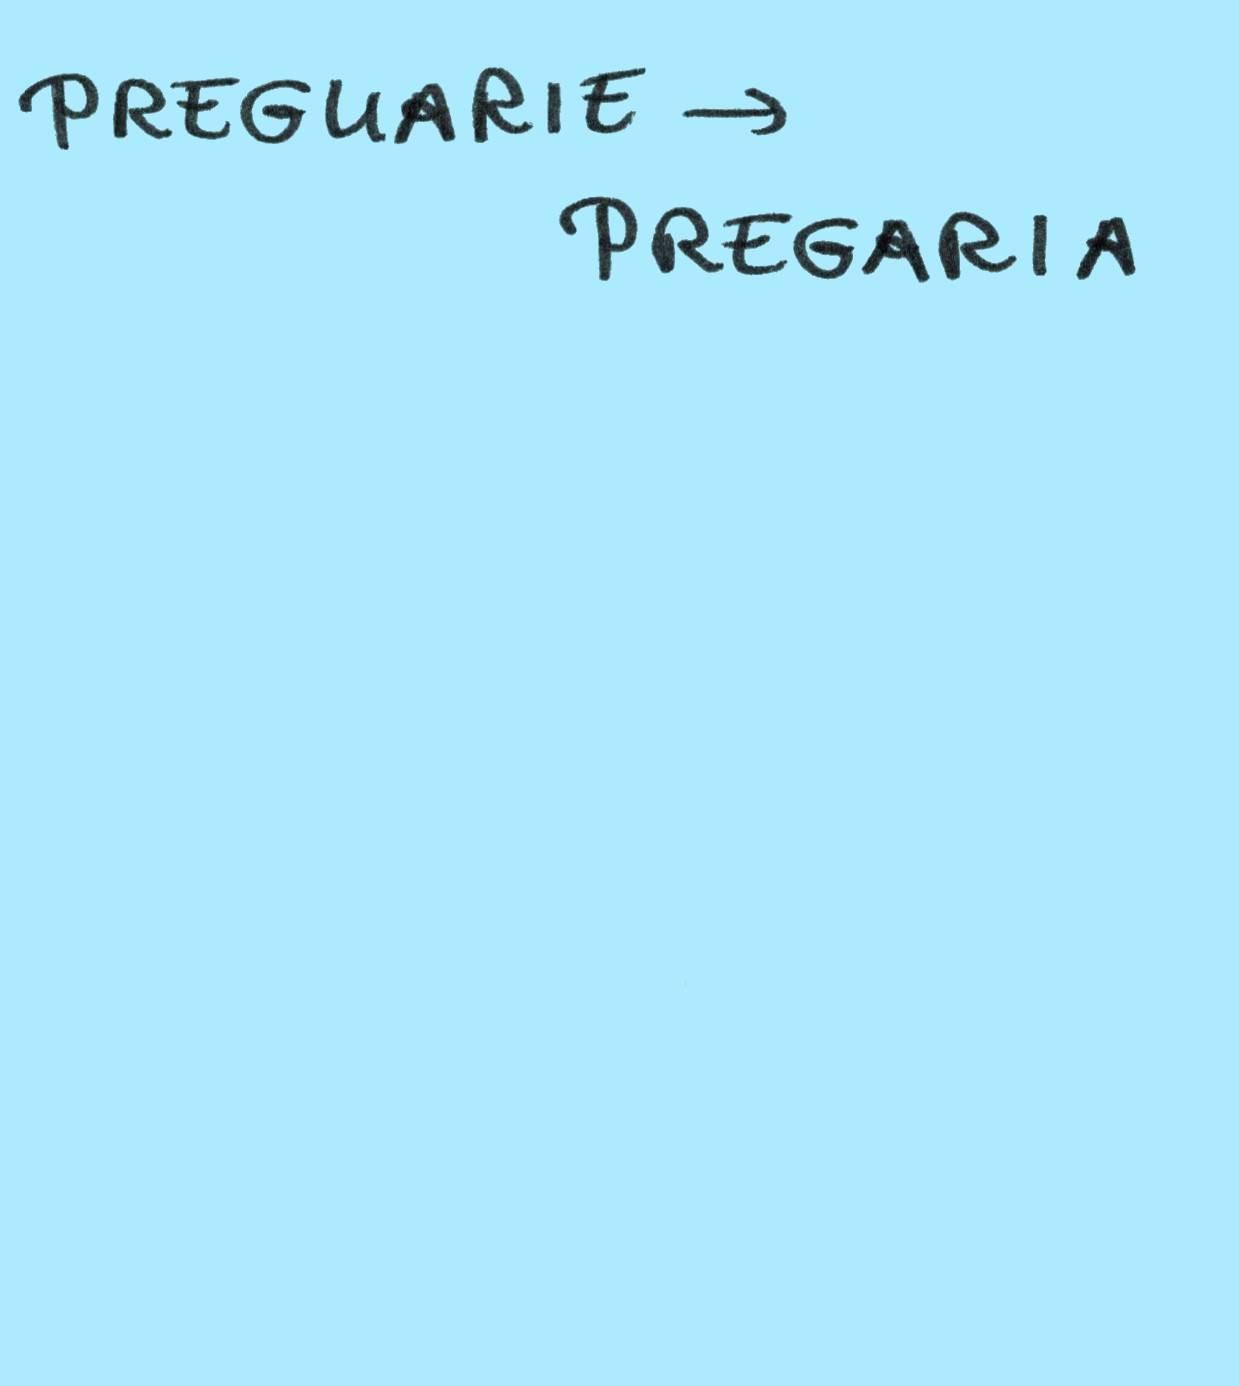 PREGUARIE →
PREGARIA